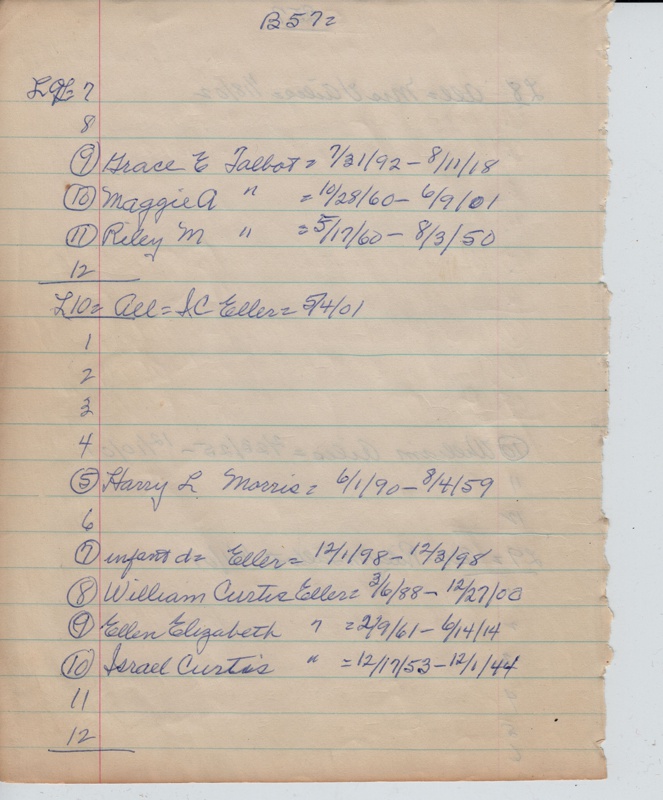 B57=
L9= 7
8
9 Grace E Talbot = 7/31/92 – 8/11/18
10 Maggie A " = 10/28/60 – 6/9/01
11 Riley M " = 5/17/60 – 8/3/50
12
L10= All = I C Eller = 5/4/01
1
2
3
4
5 Harry L Morris = 6/1/90 – 8/4/59
6
7 infant d= Eller = 12/1/98 – 12/3/98
8 William Curtis Eller = 3/6/88 – 12/27/00
9 Ellen Elizabeth " = 2/9/61 – 6/14/14
10 Israel Curtis " = 12/17/53 – 12/1/44
11
12